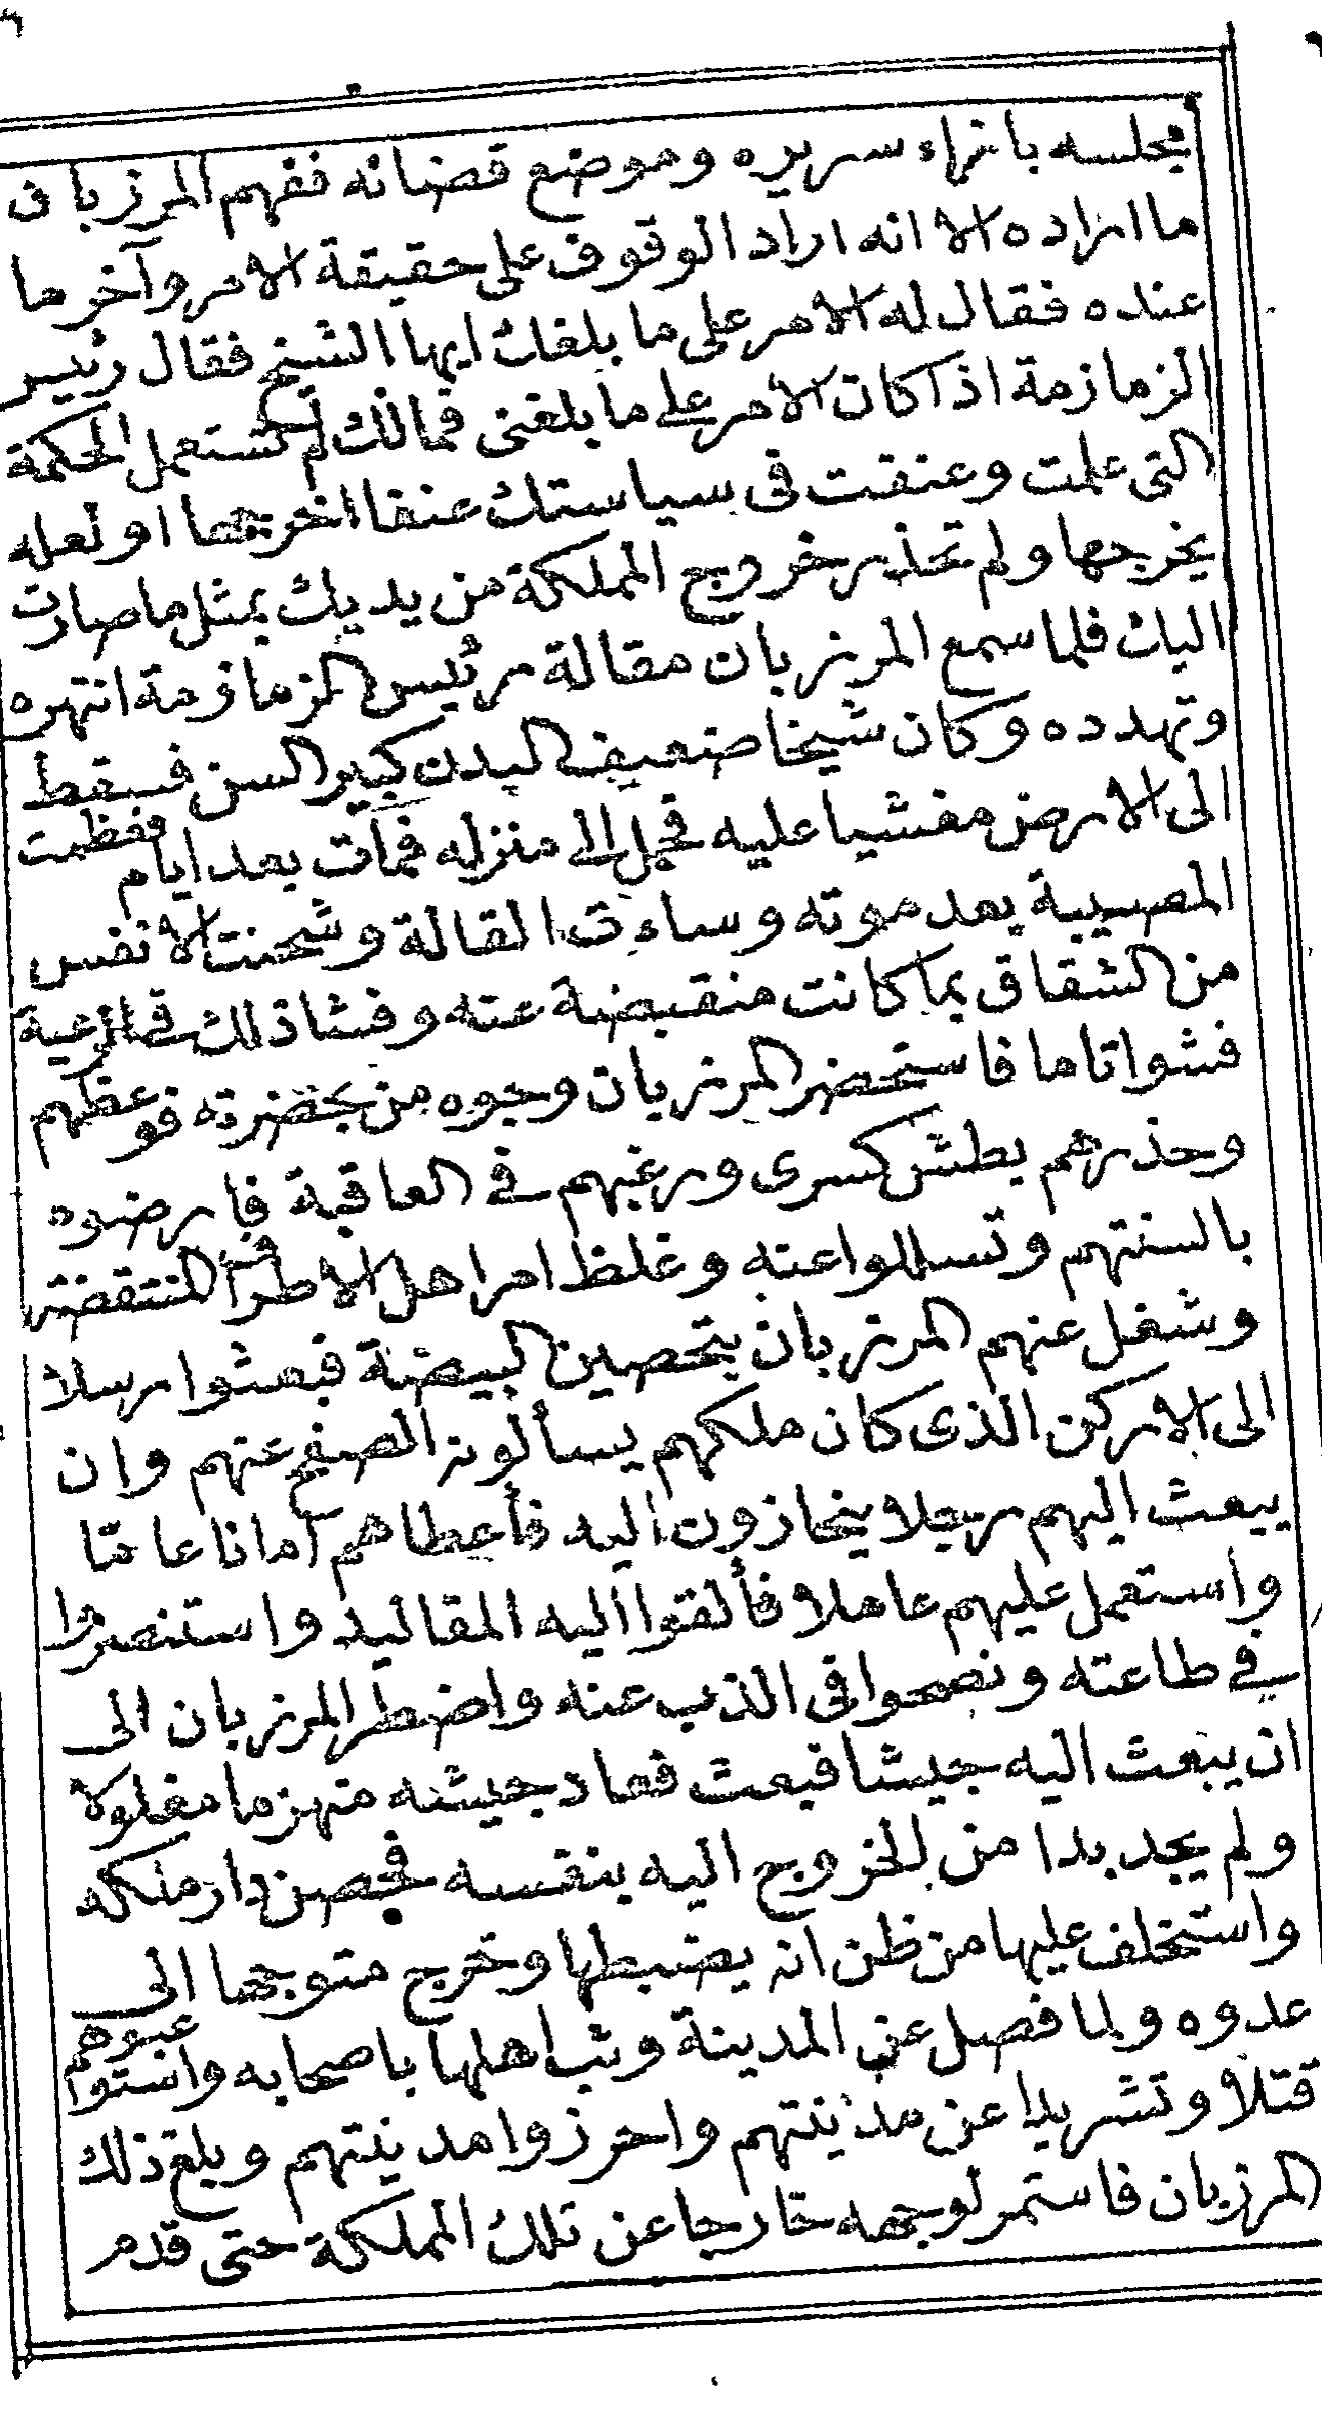 مجلسه بانهاء سريره وموضع قضائه ففهم المرزبان
ما اراده الا انه اراد الوقوف على حقيقة الامر وآخر ما
عنده فقال له الامر على ما بلغك ايها الشيخ فقال رئيس
الزمازمة اذا كان الامر على ما بلغنى فمالك لم تستعمل الحكمة
التى علمت وعنفت فى سياستك عنفا اخرجها او لعله
يخرجها ولم تحذر خروج المملكة من يديك بمثل ما صارت
اليك فلما سمع المرزبان مقالة رئيس الزمازمة انتهره
وتهدده وكان شيخا ضعيف البدن كبير السن فسقط
الى الارض مغشيا عليه فحمل الى منزله فمات بعد ايام فعظمت
المصيبة بعد موته وساءت القالة وشحنت الانفس
من الشقاق بما كانت منقبضة عنه وفشا ذلك فى الرعية
فشوا تاما فاستحضر المرزبان وجوه من بحضرته فوعظهم
وحذرهم بطش كسرى ورغبهم فى العاقبة فارضوه
بالسنتهم وتسللوا عنه وغلظ امر اهل الاطراف المنتقضة
وشغل عنهم المرزبان بتحصين البيضة فبعثوا رسلا
الى الاركن الذى كان ملكهم يسألونه الصفح عنهم وان
يبعث اليهم رجلا ينحازون اليه فأعطاهم أمانا عامّا
واستعمل عليهم عاملا فألقوا اليه المقاليد واستنصروا
فى طاعته ونصحوا فى الذب عنه واضطر المرزبان الى
ان يبعث اليه جيشا فبعث فعاد جيشه منهزما مفلولا
ولم يجد بدا من الخروج اليه بنفسه فحصن دار ملكه
واستخلف عليها من ظن انه يضبطها وخرج متوجها الى
عدوه ولما فصل عن المدينة وثب اهلها باصحابه واستوعبوهم
قتلا وتشريدا عن مدينتهم واحرزوا مدينتهم وبلغ ذلك
المرزبان فاستمر لوجهه خارجا عن تلك المملكة حتى قدم